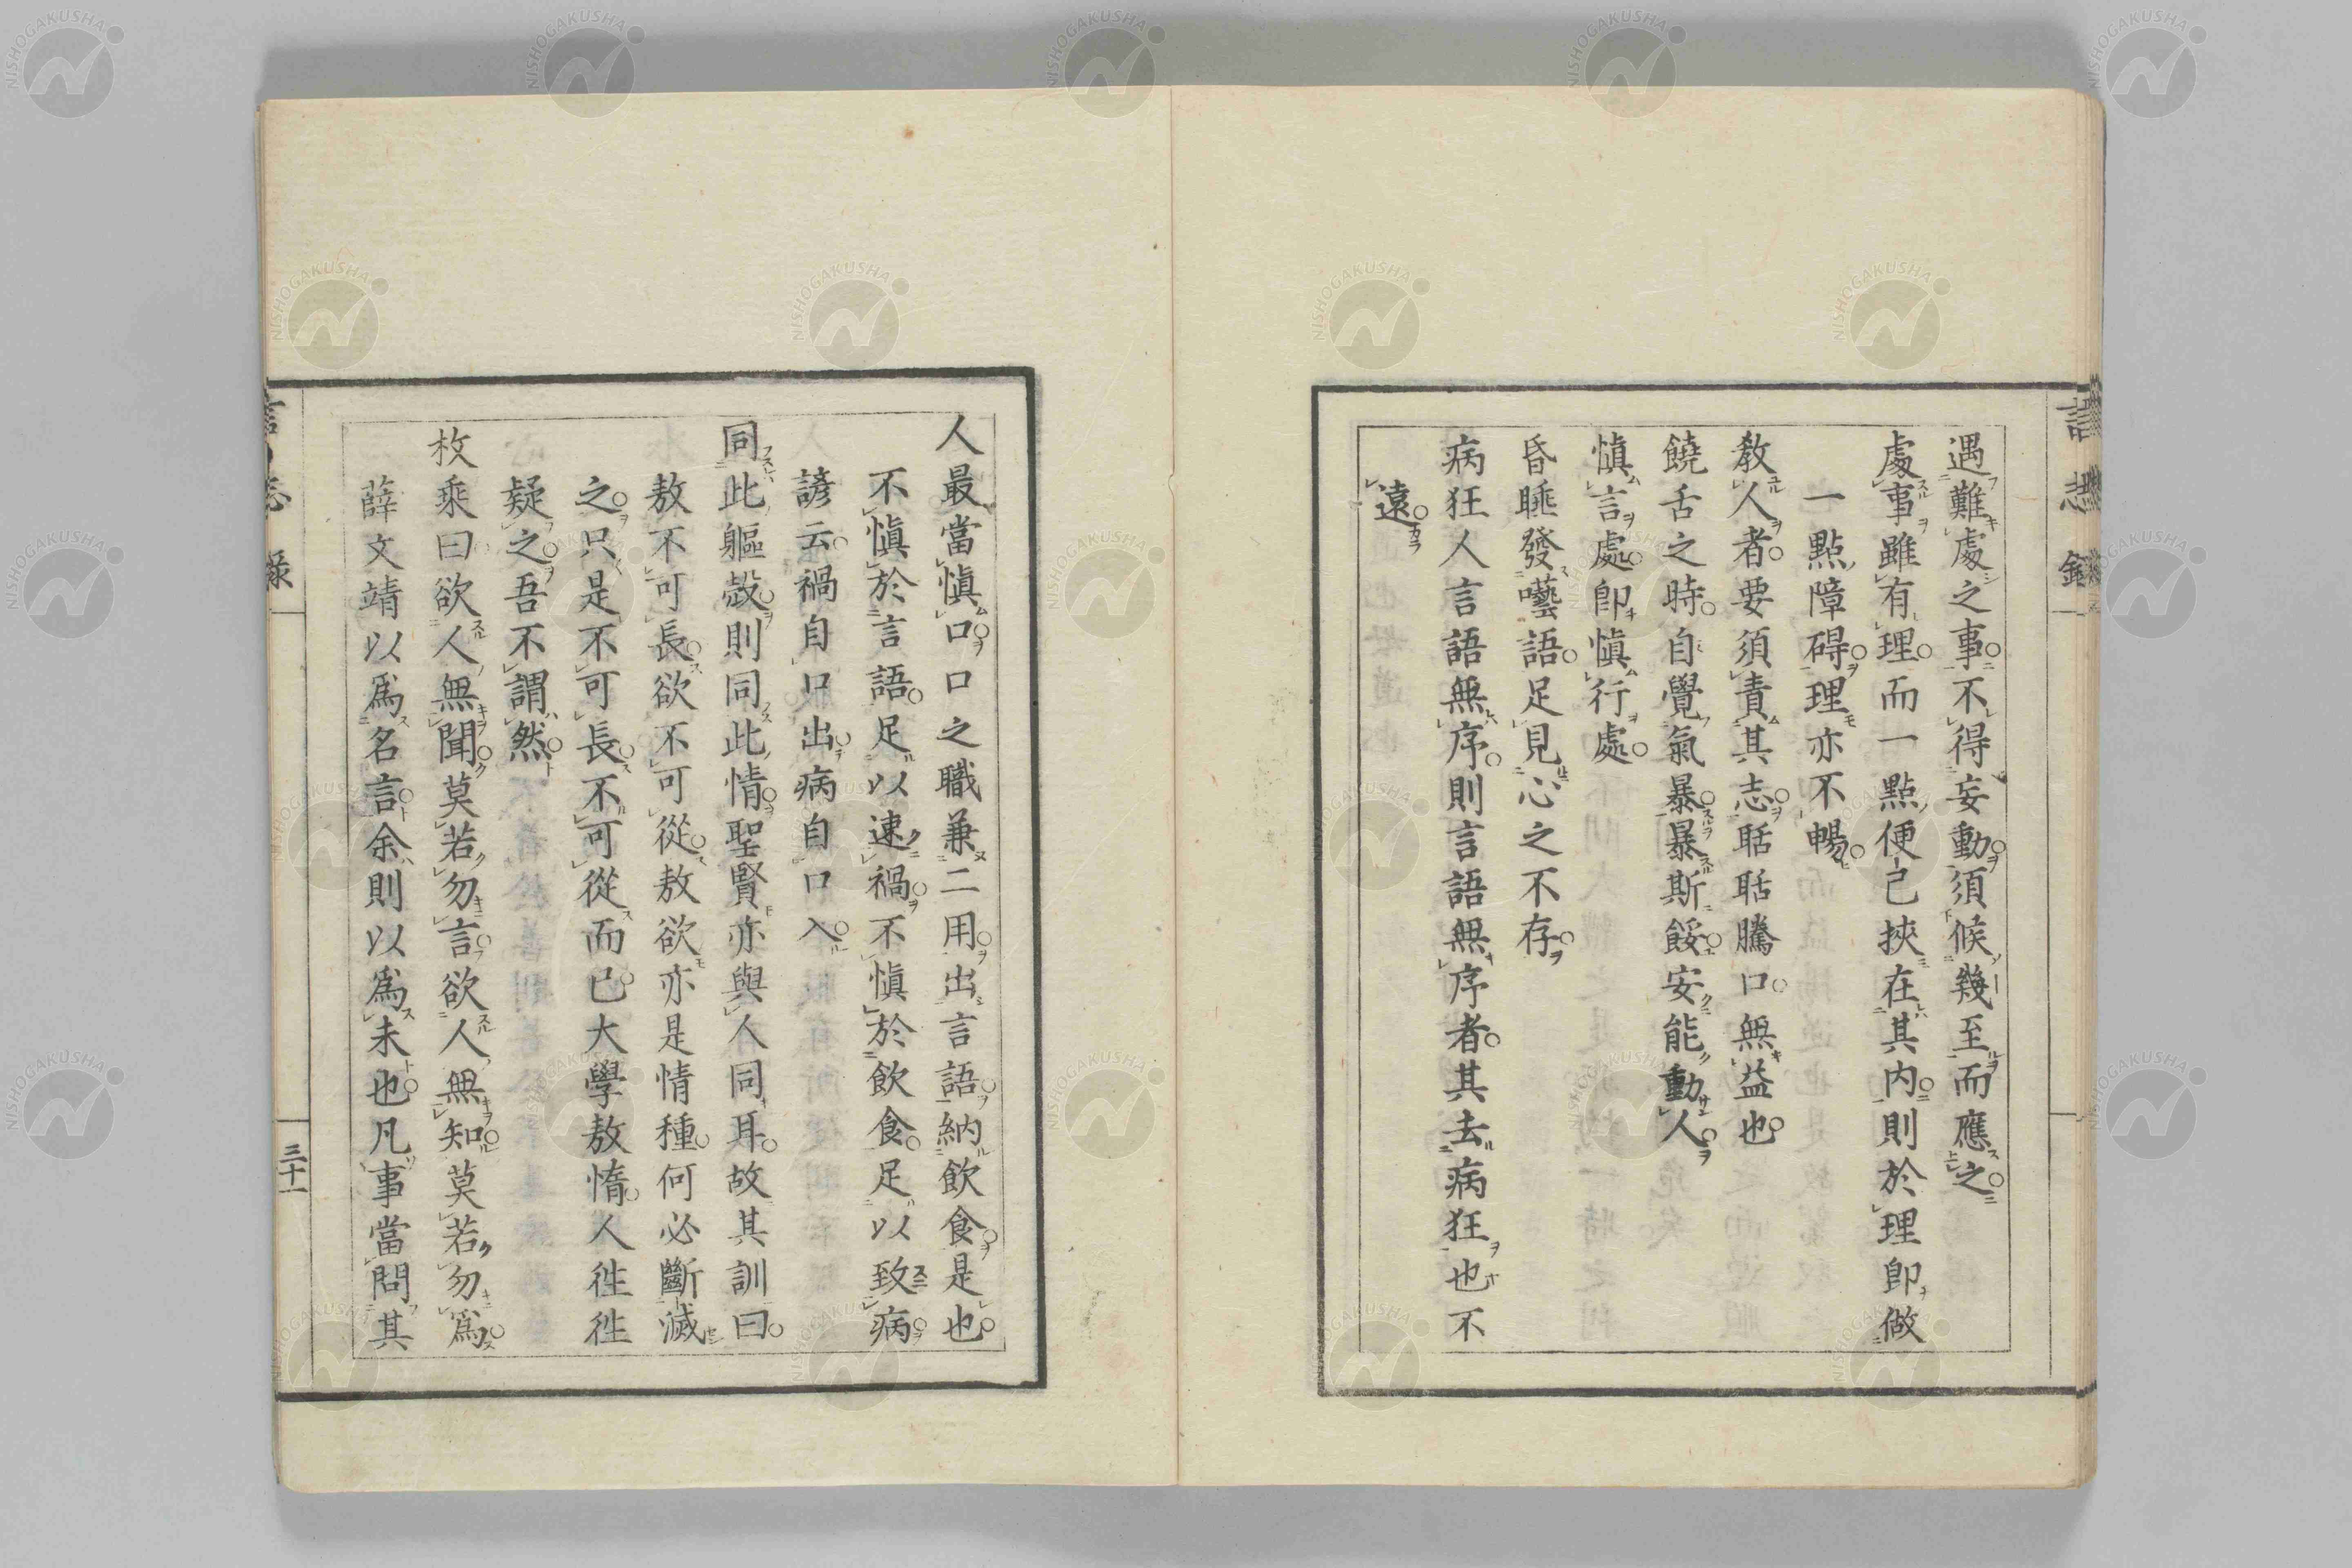 言志錄
遇難處之事。不得妄動。須候幾至而應之。
處事雖有理。而一點便己挾在其内。則於理卽做
一點障碍。理亦不暢。
教人者。要須責其志。聒聒騰口。無益也。
饒舌之時。自覺氣暴。暴斯餒。安能動人。
愼言處。卽愼行處。
昏睡發囈語。足見心之不存。
病狂人言語無序。則言語無序者。其去病狂也不
遠。
人最當愼口。口之職兼二用。出言語。納飮食。是也。
不愼於言語。足以速禍。不愼於飮食。足以致病。
諺云。禍自口出。病自口入。
同此軀殼。則同此情。聖賢亦與人同耳。故其訓曰。
敖不可長。欲不可從。敖欲亦是情種。何必斷滅
之。只是不可長。不可從而已。大學敖惰。人往往
疑之。吾不謂然。
枚乘曰。欲人無聞。莫若勿言。欲人無知。莫若勿爲。
薛文靖以爲名言。余則以爲未也。凡事當問其
三十一
NISHOGAKUSHA